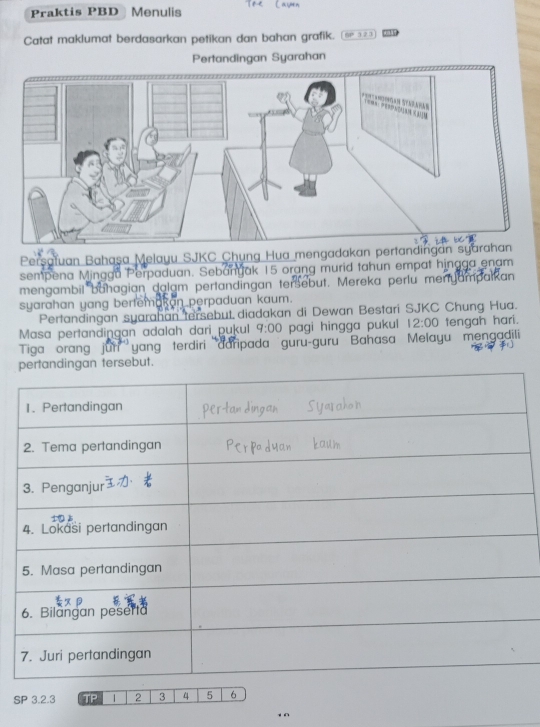 Praktis PBD Menulis
The
Catat maklumat berdasarkan petikan dan bahan grafik. SP 3.2.3
Pertandingan Syarahan
PERTANDINGAN SYARAHAN
TEMA: PERPADUAN KAUM
演讲比赛
Persatuan Bahasa Melayu SJKC Chung Hua mengadakan pertandingan syarahan
sempena Minggu Perpaduan. Sebanyak 15 orang murid tahun empat hingga enam
mengambil bahagian dalam pertandingan tersebut. Mereka perlu menyampaikan
syarahan yang bertemakan perpaduan kaum.
Pertandingan syarahan tersebut diadakan di Dewan Bestari SJKC Chung Hua.
Masa pertandingan adalah dari pukul 9:00 pagi hingga pukul 12:00 tengah hari.
Tiga orang juri yang terdiri daripada guru-guru Bahasa Melayu mengadili
pertandingan tersebut.
1. Pertandingan pertandingan Syarahan
2. Tema pertandingan Perpaduan kaum
3. Penganjur 主力 者
4. Lokasi pertandingan
5. Masa pertandingan
6. Bilangan peserta
7. Juri pertandingan
SP 3.2.3 TP 1 2 3 4 5 6